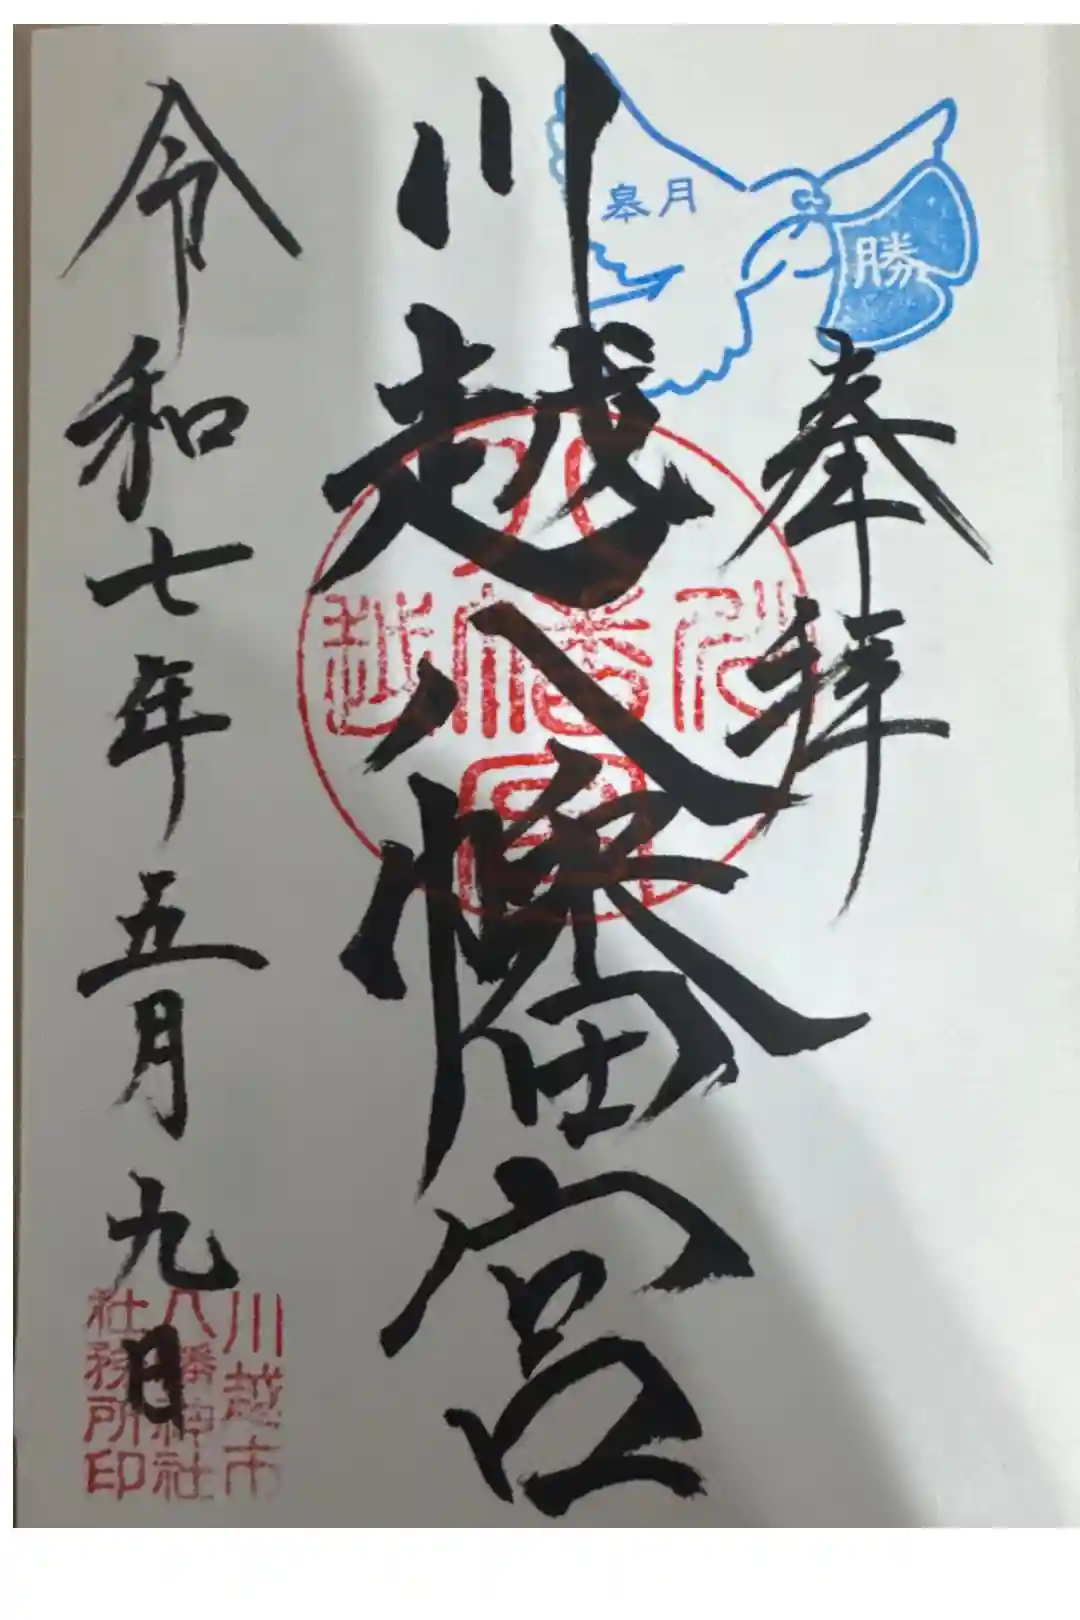 奉拝
皐月
勝
川越八幡宮
川越
八幡宮
令和七年五月九日
川越市
八幡神社
社務所印